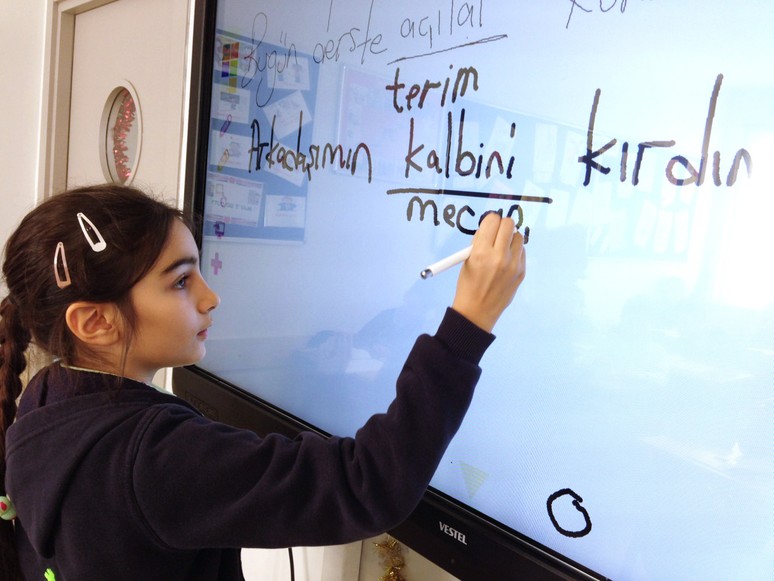 Bugün derste açılal
terim
Arkadaşımın kalbini kırdın
mecaz
VESTEL